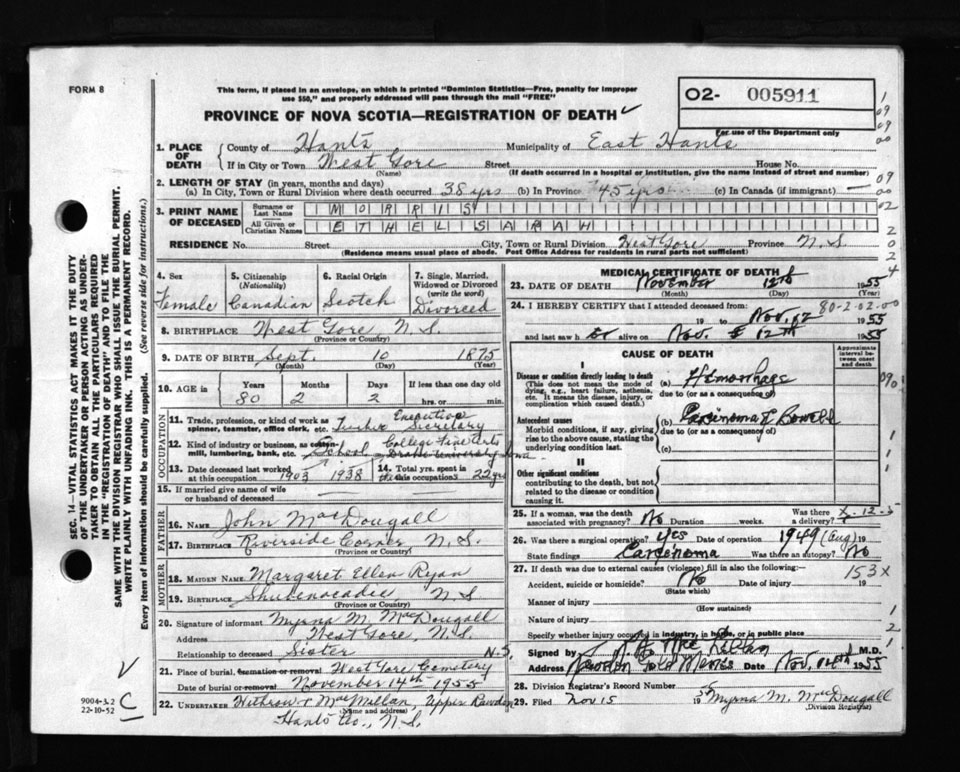 FORM 8
This form, if placed in an envelope, on which is printed "Dominion Statistics—Free, penalty for improper
use $50," and properly addressed will pass through the mail "FREE"
PROVINCE OF NOVA SCOTIA—REGISTRATION OF DEATH ✓
O2- 005911
For use of the Department only
1. PLACE OF DEATH
County of Hants Municipality of East Hants
If in City or Town West Gore Street House No.
(Name) (If death occurred in a hospital or institution, give the name instead of street and number)
2. LENGTH OF STAY (in years, months and days)
(a) In City, Town or Rural Division where death occurred 38 yrs (b) In Province 45 yrs (c) In Canada (if immigrant) —
3. PRINT NAME OF DECEASED
Surname or Last Name MORRIS
All Given or Christian Names ETHEL SARAH
RESIDENCE No. Street City, Town or Rural Division West Gore Province N.S.
(Residence means usual place of abode. Post Office Address for residents in rural parts not sufficient)
4. Sex Female
5. Citizenship (Nationality) Canadian
6. Racial Origin Scotch
7. Single, Married, Widowed or Divorced (write the word) Divorced
8. BIRTHPLACE West Gore, N.S.
(Province or Country)
9. DATE OF BIRTH Sept. 10 1875
(Month) (Day) (Year)
10. AGE in Years 80 Months 2 Days 2 If less than one day old hrs. or min.
OCCUPATION
11. Trade, profession, or kind of work as spinner, teamster, office clerk, etc. Teacher Executive Secretary
12. Kind of industry or business, as cotton mill, lumbering, bank, etc. School College Fine Arts Drake University Iowa
13. Date deceased last worked at this occupation 1903 1938
14. Total yrs. spent in this occupation 22 yrs
15. If married give name of wife or husband of deceased
FATHER
16. NAME John MacDougall
17. BIRTHPLACE Riverside Corner N.S.
(Province or Country)
MOTHER
18. MAIDEN NAME Margaret Ellen Ryan
19. BIRTHPLACE Shubenacadie N S
(Province or Country)
20. Signature of informant Myrna M. MacDougall
Address West Gore, N.S.
Relationship to deceased Sister N.S.
21. Place of burial, cremation or removal West Gore Cemetery
Date of burial or removal November 14th 1955
22. UNDERTAKER Withrow & MacMillan, Upper Rawdon
(Name and address)
Hants Co., N.S.
MEDICAL CERTIFICATE OF DEATH
23. DATE OF DEATH November 12th 1955
(Month) (Day) (Year)
80-2-02-00
24. I HEREBY CERTIFY that I attended deceased from:
19 to Nov. 12 1955
and last saw h er alive on Nov. 12th 1955
CAUSE OF DEATH
Approximate interval between onset and death
I
Disease or condition directly leading to death
(This does not mean the mode of dying, e.g., heart failure, asthenia, etc. It means the disease, injury, or complication which caused death.)
(a) Hemorrhage
due to (or as a consequence of)
Antecedent causes
Morbid conditions, if any, giving rise to the above cause, stating the underlying condition last.
(b) Carcinoma of Bowell
due to (or as a consequence of)
(c)
II
Other significant conditions
contributing to the death, but not related to the disease or condition causing it.
25. If a woman, was the death associated with pregnancy? No Duration weeks. Was there a delivery?
26. Was there a surgical operation? yes Date of operation 1949 (Aug) 19
State findings Carcinoma Was there an autopsy? No
27. If death was due to external causes (violence) fill in also the following:—
153X
Accident, suicide or homicide? No Date of injury 19
(State which)
Manner of injury
(How sustained)
Nature of injury
Specify whether injury occurred in industry, in home, or in public place
Signed by M.D.
Address Rawdon Gold Mines Date Nov. 1955
28. Division Registrar's Record Number
29. Filed Nov 15 1955 Myrna M. MacDougall
(Division Registrar)
SEC. 14—VITAL STATISTICS ACT MAKES IT THE DUTY
OF THE UNDERTAKER OR PERSON ACTING AS UNDER-
TAKER TO OBTAIN ALL THE PARTICULARS REQUIRED
IN THE "REGISTRATION OF DEATH" AND TO FILE THE
SAME WITH THE DIVISION REGISTRAR WHO SHALL ISSUE THE BURIAL PERMIT.
WRITE PLAINLY WITH UNFADING INK. THIS IS A PERMANENT RECORD.
Every item of information should be carefully supplied. (See reverse side for instructions.)
9004-3.2
22-10-52
C